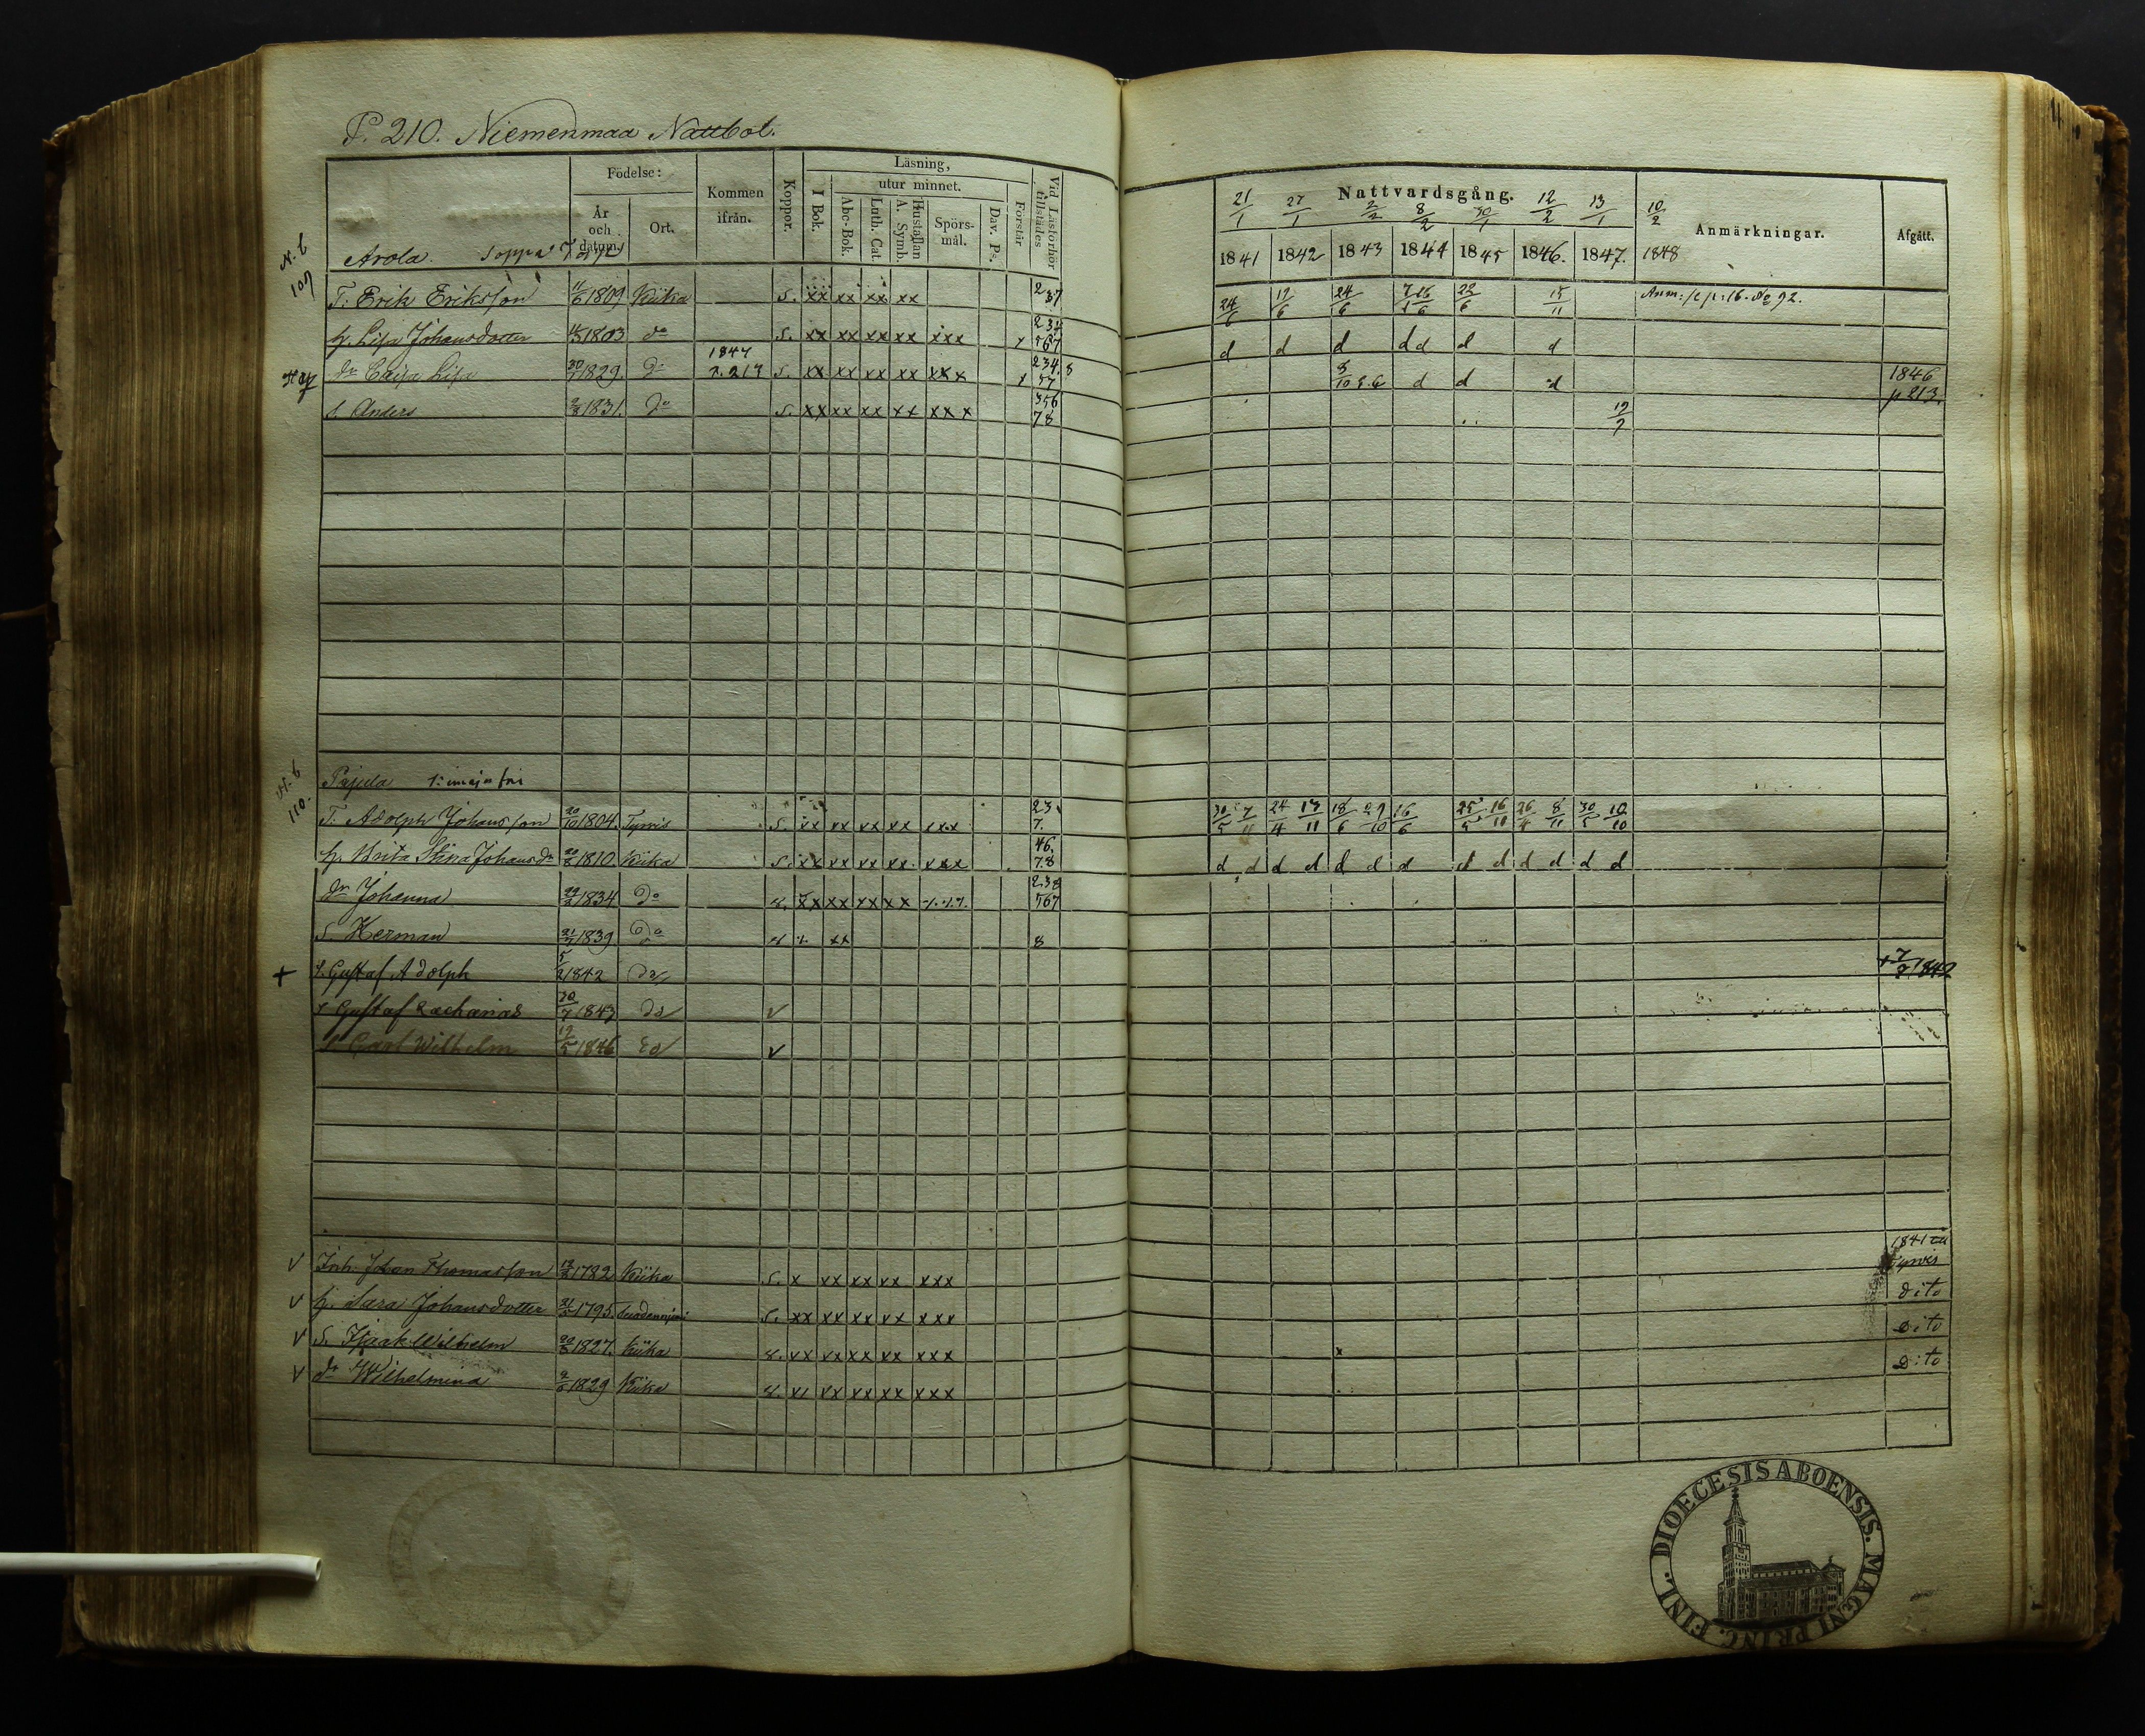 P. 210. Niemenmaa Nattbol.
Födelse: Kommen ifrån. Koppor. Läsning, Vid Läsförhör tillstädes
utur minnet.
År och datum. Ort. I Bok. Abc-Bok. Luth. Cat. A. Symb. Hustaflan Spörs-mål. Dav. Ps. Förstår
Nattvardsgång. Anmärkningar. Afgått.
21/1 27/1 2/2 8/2 30/1 12/2 13/1 10/2
1841 1842 1843 1844 1845 1846. 1847. 1848
N. 6 107 Arola. Soppa
T. Erik Eriksson 11/6 1809 Kiika S. xx xx xx xx 237 24/6 19/6 24/6 22/6 15/11 Anm: 16. No 92.
h. Lisa Johansdotter 1803 do S. xx xx xx xx xxx 234 567 d d d d d d d
1847
dr Caisa Lisa 30/7 1829. do p. 217 S. xx xx xx xx xxx 234.8 57 d d d 1846 p 213.
s. Anders 1831. do S. xx xx xx xx xxx 356 78 19/7
N. 6 110. Pajula
T. Adolph Johansson 20/10 1804. Tyrvis S. xx xx xx xx xxx 23 7. 30/5 7/11 24/4 13/11 18/6 29/10 16/6 25/5 16/11 26/4 8/11 30/5 10/10
h. Brita Stina Johansdr 1810. Kiika S. xx xx xx xx xxx 46. 78 d d d d d d d d d d d d d
dr Johanna 1834 do xx xx xx xx 238 567
s. Herman 21/7 1839 do xx 8
+ s. Gustaf Adolph 5/2 1842 do 1842
s Gustaf Zacharias 20/7 1843 do v
s. Carl Wilhelm 19/5 1846 do v
v Inh. Johan Thomasson 1782 Kiika S. x xx xx xx xxx 1841 till Tyrvis
v h. Sara Johansdotter 1795. S. xx xx xx xx xxx dito
v S. Isaak Wilhelm 1827. Kiika xx xx xx xx xxx dito
v dr Wilhelmina 1829 Kiika xx xx xx xxx dito
DIOECESIS ABOENSIS. MAGNI PRINC. FINL.